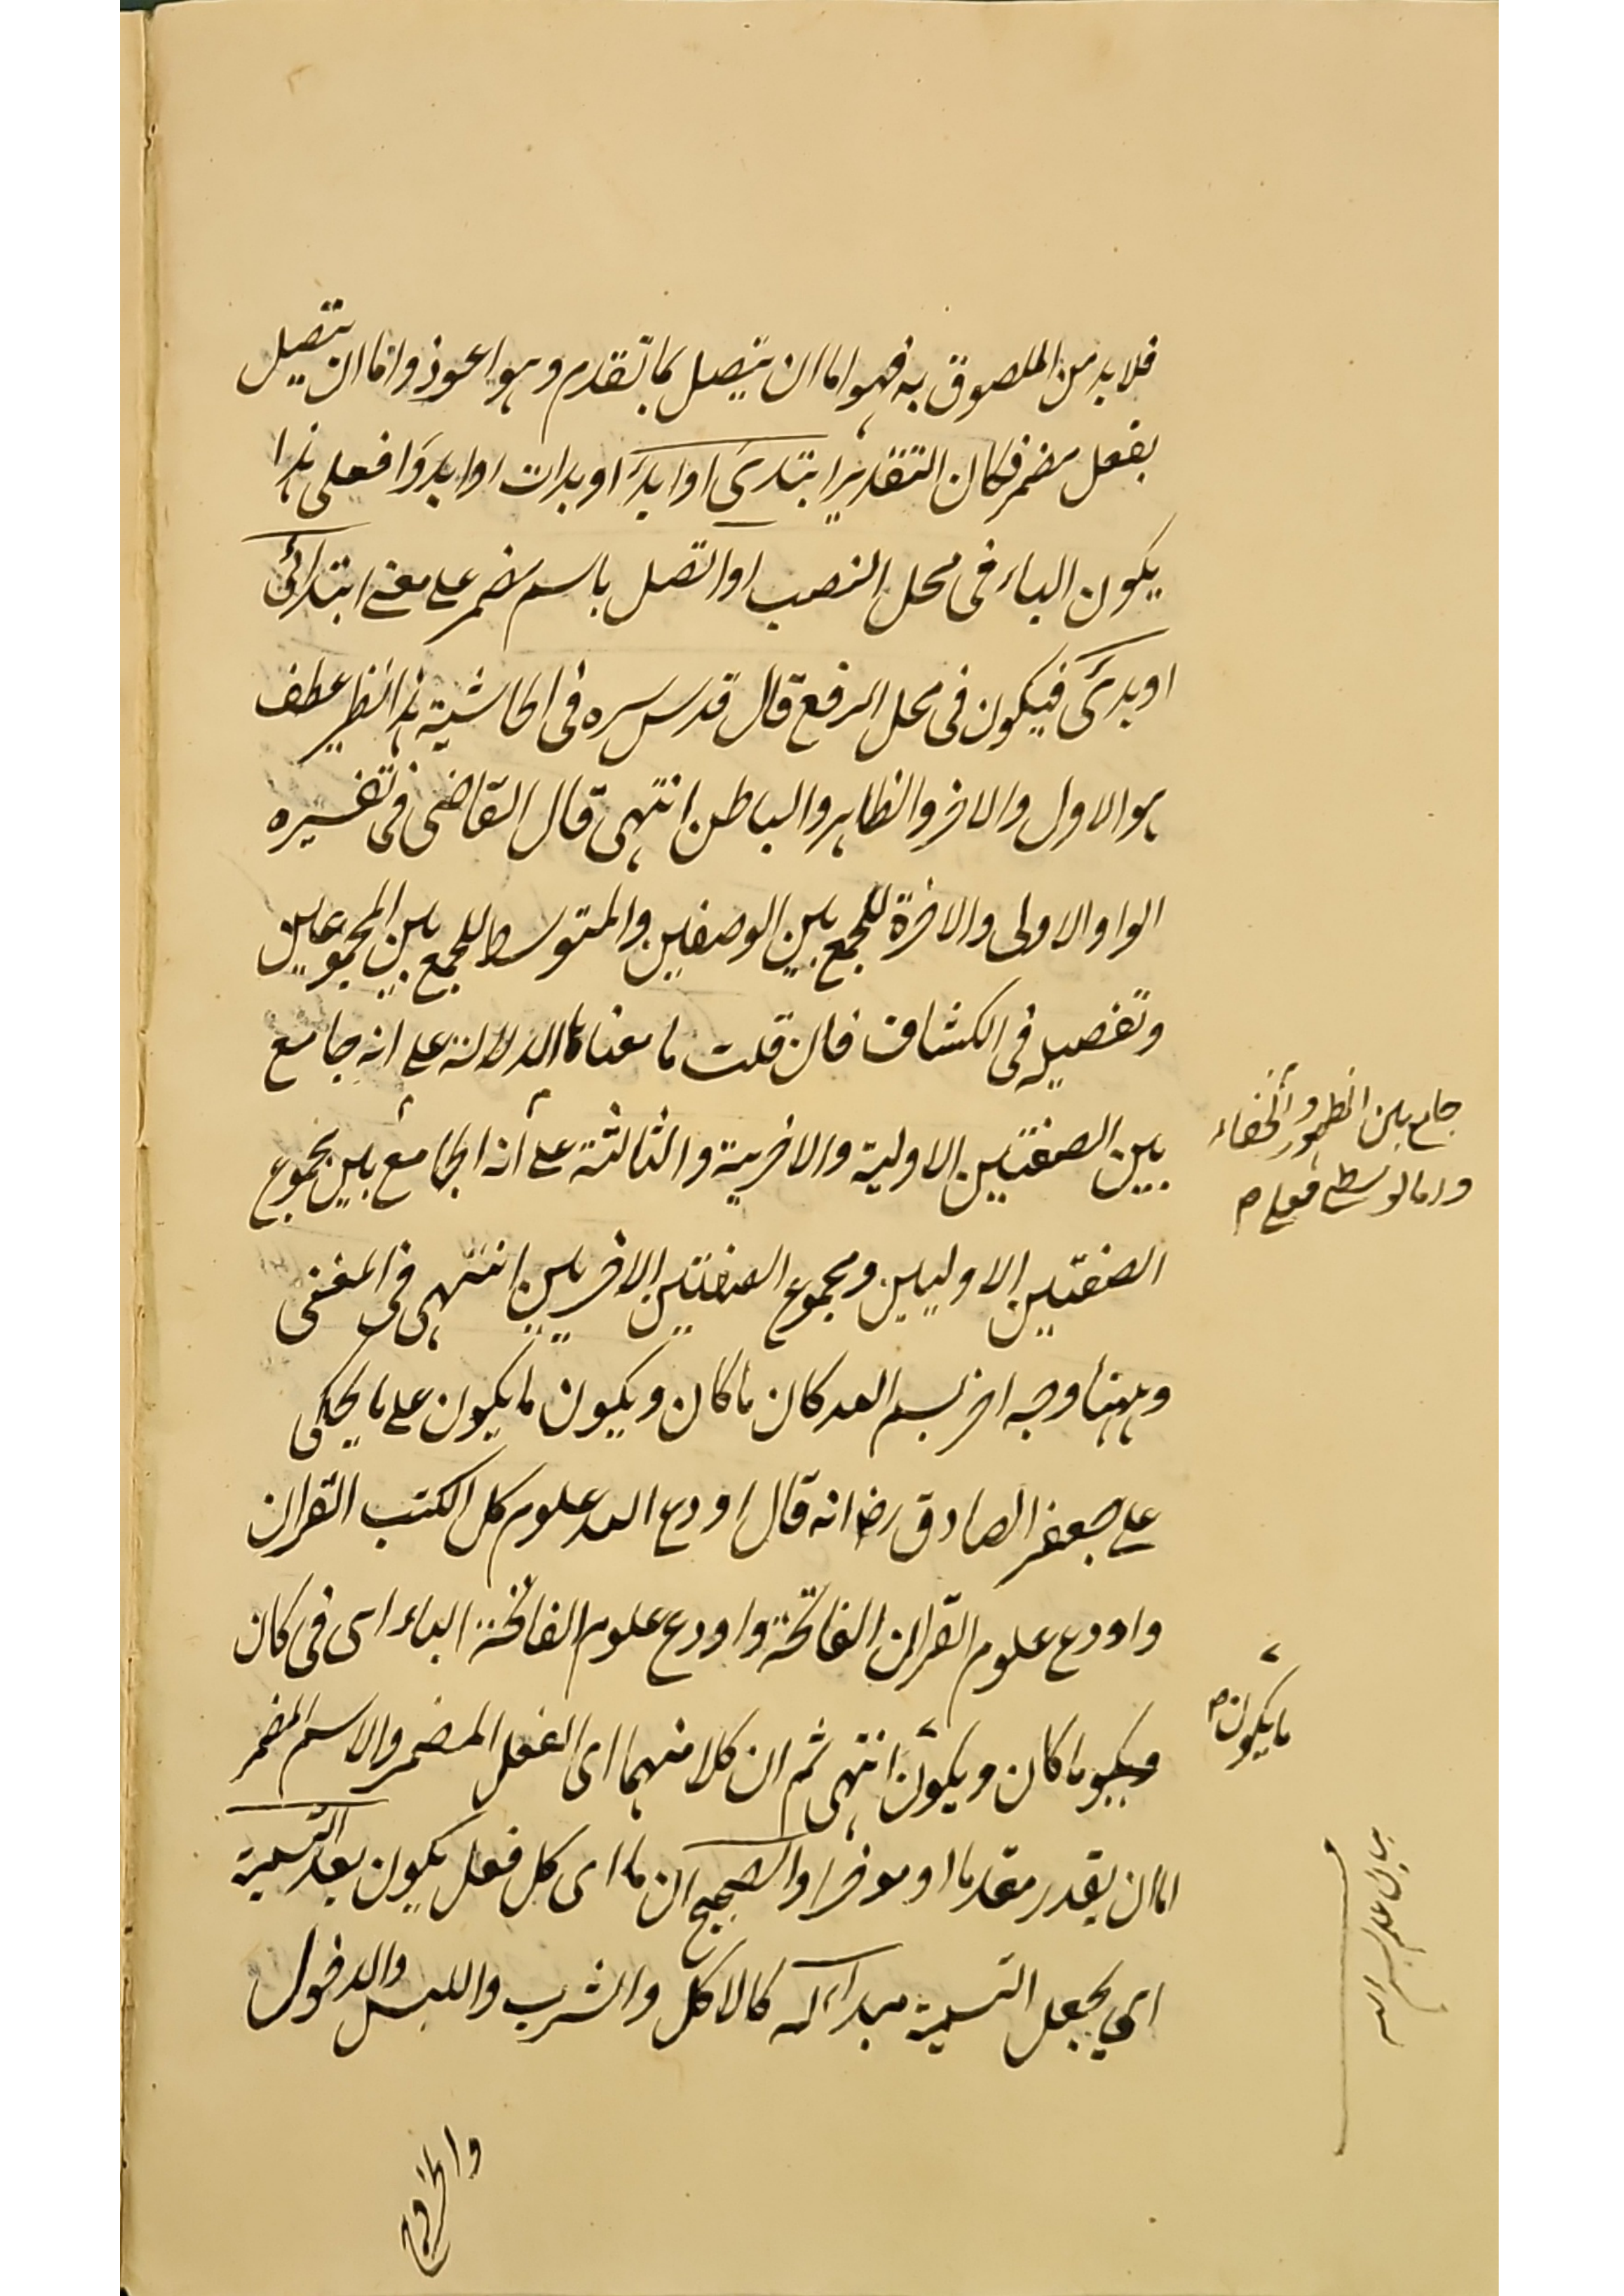 فلابد من الملصوق به فهو اما ان يتصل بما تقدم وهو اعوذ واما ان يتصل
بفعل مضمر فكان التقدير ابتدئ او ابدء او بدات او ابدؤا فعلى هذا
يكون الباء فى محل النصب او اتصل باسم مضمر على معنى ابتدائى
او بدئ فيكون فى محل الرفع قال قدس سره فى الحاشية هذا نظير عطف
هو الاول والاخر والظاهر والباطن انتهى قال القاضى فى تفسيره
الواو الاولى والاخرة للجمع بين الوصفين والمتوسط للجمع بين المجموعين
وتفصيله فى الكشاف فان قلت ما معناها الدلالة على انه جامع
بين الصفتين الاولية والاخرية والثالثة على أنه الجامع بين مجموع
جامع بين الظهور والخفاء
الصفتين الاوليين ومجموع الصفتين الاخريين انتهى فى المغنى
وههنا وجه اخر بسم الله كان ما كان ويكون ما يكون على ما يحكى
على جعفر الصادق رضـ انه قال اودع الله علوم كل الكتب القران
واودع علوم القران الفاتحة واودع علوم الفاتحة الباء اى فى كان
ما كان ويكون انتهى ثم ان كلا منهما اى الفعل المضمر والاسم المضمر
ما يكون
اما ان يقدر مقدما او موخرا والصحيح ان ما اى كل فعل يكون بعد التسمية
اى يجعل التسمية مبداء له كالاكل والشرب واللبس والدخول